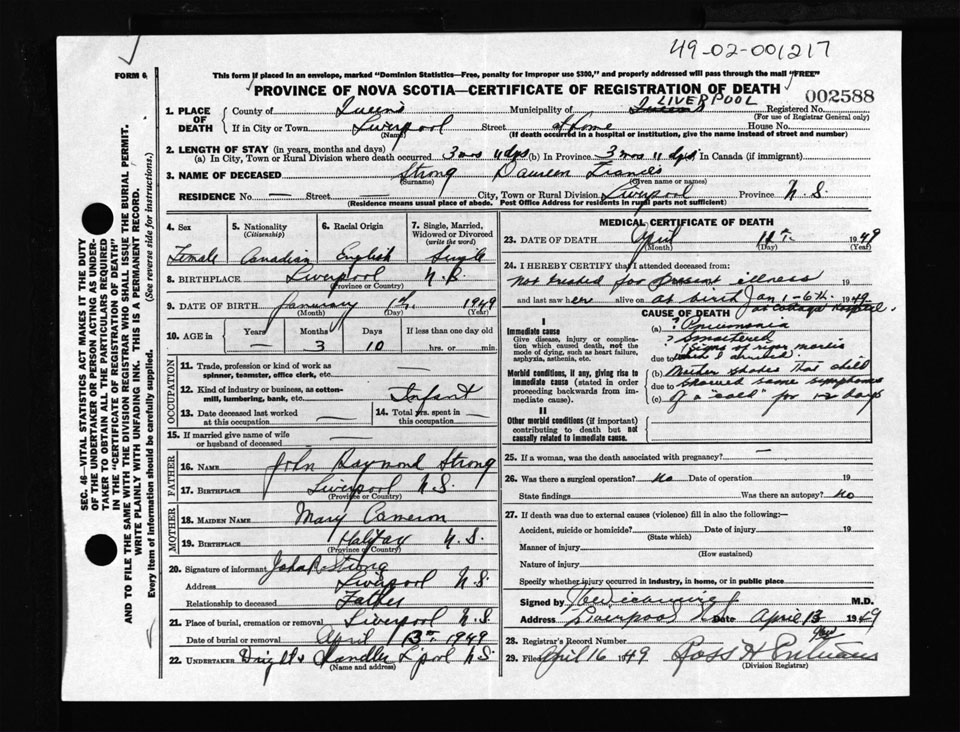 49-02-001217
FORM 6.
This form if placed in an envelope, marked "Dominion Statistics—Free, penalty for improper use $300," and properly addressed will pass through the mail "FREE"
PROVINCE OF NOVA SCOTIA—CERTIFICATE OF REGISTRATION OF DEATH
002588
1. PLACE OF DEATH
County of Queens Municipality of LIVERPOOL Registered No.
(For use of Registrar General only)
If in City or Town Liverpool Street at home House No.
(Name) (If death occurred in a hospital or institution, give the name instead of street and number)
2. LENGTH OF STAY (in years, months and days)
(a) In City, Town or Rural Division where death occurred 3 mos 11 dys (b) In Province 3 mos 11 dys In Canada (if immigrant)
3. NAME OF DECEASED Strong Daureen Frances
(Surname) (Given name or names)
RESIDENCE No. — Street City, Town or Rural Division Liverpool Province N.S.
(Residence means usual place of abode. Post Office Address for residents in rural parts not sufficient)
4. Sex
Female
5. Nationality
(Citizenship)
Canadian
6. Racial Origin
English
7. Single, Married, Widowed or Divorced
(write the word)
Single
8. BIRTHPLACE Liverpool N.S.
(Province or Country)
9. DATE OF BIRTH January 1st 1949
(Month) (Day) (Year)
10. AGE in Years Months Days If less than one day old
— 3 10 hrs. or min.
OCCUPATION
11. Trade, profession or kind of work as spinner, teamster, office clerk, etc. —
12. Kind of industry or business, as cotton-mill, lumbering, bank, etc. Infant
13. Date deceased last worked at this occupation —
14. Total yrs. spent in this occupation —
15. If married give name of wife or husband of deceased —
FATHER
16. NAME John Raymond Strong
17. BIRTHPLACE Liverpool N.S.
(Province or Country)
MOTHER
18. MAIDEN NAME Mary Cameron
19. BIRTHPLACE Halifax N.S.
(Province or Country)
20. Signature of informant John R Strong
Address Liverpool N.S.
Relationship to deceased Father
21. Place of burial, cremation or removal Liverpool N.S.
Date of burial or removal April 13th 1949
22. UNDERTAKER Chandler L'pool N.S.
(Name and address)
MEDICAL CERTIFICATE OF DEATH
23. DATE OF DEATH April 11th 1949
(Month) (Day) (Year)
24. I HEREBY CERTIFY that I attended deceased from:
Not treated for present illness
and last saw her alive on at birth Jan 1-6th 1949
at Cottage Hospital.
CAUSE OF DEATH
I
Immediate cause
Give disease, injury or complication which caused death, not the mode of dying, such as heart failure, asphyxia, asthenia, etc.
Morbid conditions, if any, giving rise to immediate cause (stated in order proceeding backwards from immediate cause).
II
Other morbid conditions (if important) contributing to death but not causally related to immediate cause.
(a) ? Pneumonia
? Smothered
(signs of rigor mortis
due to when I arrived.
(b) Mother states that child
due to showed some symptoms
(c) of a "cold" for 1-2 days
25. If a woman, was the death associated with pregnancy? —
26. Was there a surgical operation? No Date of operation 19
State findings Was there an autopsy? No
27. If death was due to external causes (violence) fill in also the following:—
Accident, suicide or homicide? Date of injury 19
(State which)
Manner of injury
(How sustained)
Nature of injury
Specify whether injury occurred in industry, in home, or in public place
Signed by M.D.
Address Liverpool NS Date April 13 1949
28. Registrar's Record Number
29. Filed April 16 49 Ross H
(Division Registrar)
SEC. 46—VITAL STATISTICS ACT MAKES IT THE DUTY OF THE UNDERTAKER OR PERSON ACTING AS UNDERTAKER TO OBTAIN ALL THE PARTICULARS REQUIRED IN THE "CERTIFICATE OF REGISTRATION OF DEATH" AND TO FILE THE SAME WITH THE DIVISION REGISTRAR WHO SHALL ISSUE THE BURIAL PERMIT.
WRITE PLAINLY WITH UNFADING INK. THIS IS A PERMANENT RECORD.
Every item of information should be carefully supplied. (See reverse side for instructions.)